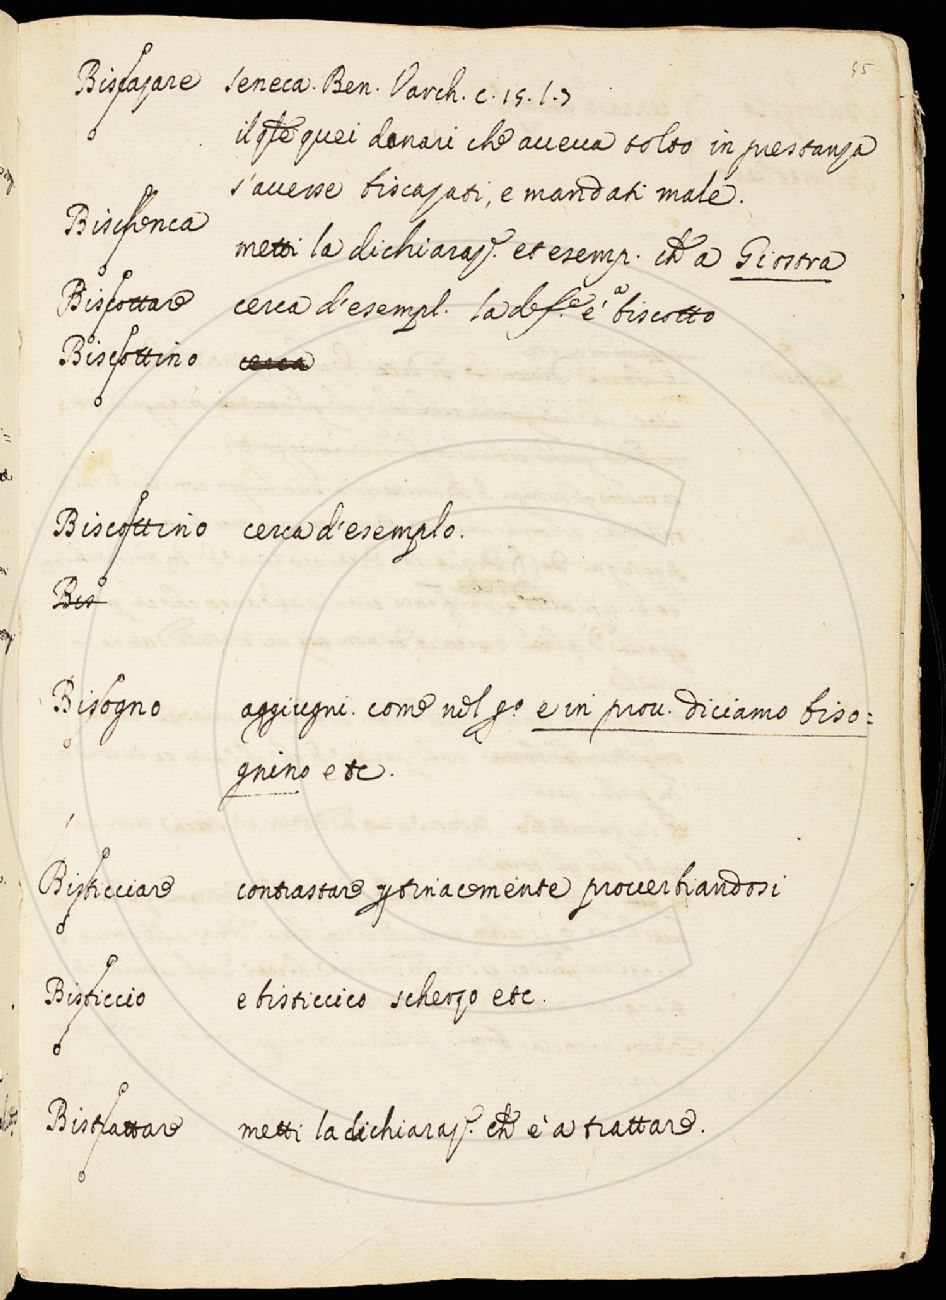 55
Biscazare Seneca. Ben. Varch. c. 15. l. 7
il qle quei danari che aveva tolto in prestanza
s'avesse biscazati, e mandati male.
Bischenca metti la dichiaraz. et esemp. ch'è a Giostra
Biscottare cerca d'esempl. la def.e è a biscotto
Biscottino cerca
Biscottino cerca d'esemplo.
Bis
Bisogno aggiugni. come nel go e in prov. diciamo biso=
gnino etc.
Bisticciare contrastare ptinacemente proverbiandosi
Bisticcio e bisticcico scherzo etc.
Bistrattare metti la dichiaraz. ch'è a trattare.